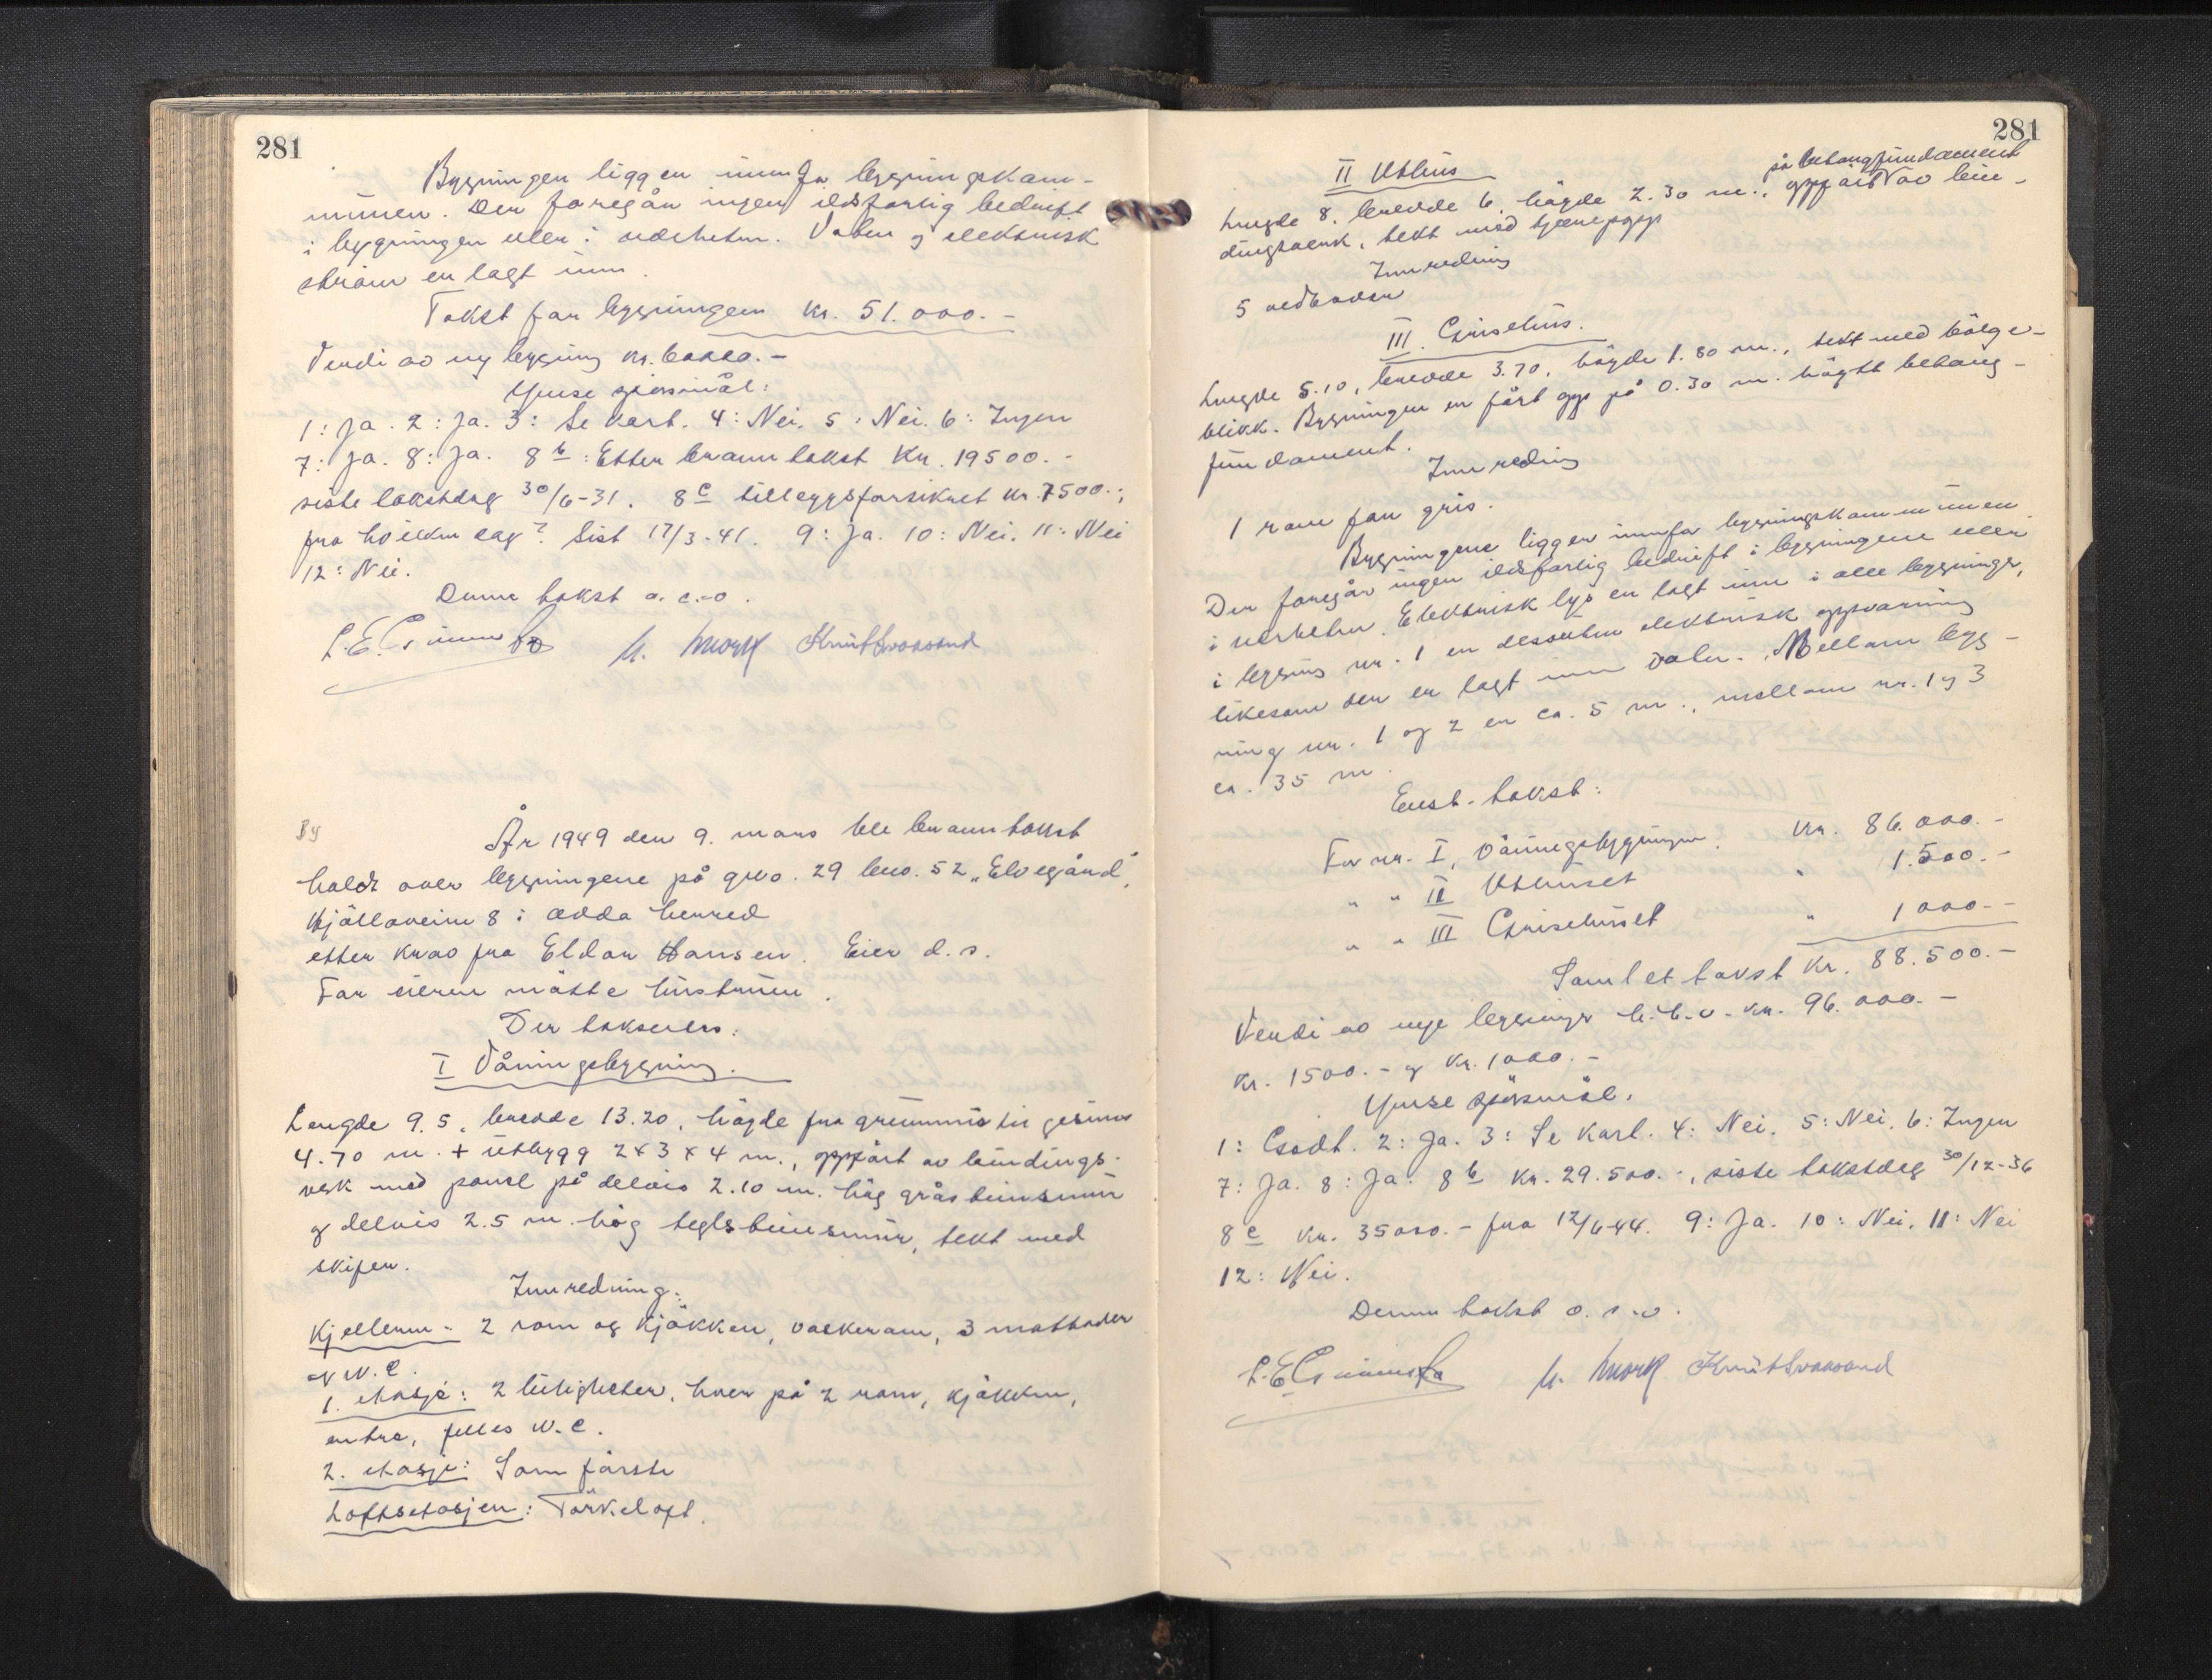 281
Bygningen ligger innafor bygningskom-
munen. Der foregår ingen ildsfarlig bedrift
i bygningen eller i nærheten. Vaten og elektrisk
strøm er lagt inn.
Takst for bygningen kr. 51.000.-
Verdi av ny bygning kr. 60000.-
Ymse spørsmål:
1: Ja. 2: Ja. 3: Se kart. 4: Nei. 5: Nei. 6: Ingen
7: Ja. 8: Ja. 8b: Etter branntakst Kr. 19500.-
siste takstdag 30/6-31. 8c tilleggsforsikret kr. 7500.-,
fra hvilken dag? Sist 17/3-41. 9: Ja. 10: Nei. 11: Nei
12: Nei.
Denne takst o.s.v.
M. Mork Knut
År 1949 den 9. mars ble branntakst
holdt over bygningene på gno. 29 bno. 52 „Elvegård",
8 i Odda herred
etter krav fra Eldar Hansen. Eier d.s.
For eieren møtte hustruen.
Der takseres:
I Våningsbygning.
Lengde 9.5, bredde 13.20, høgde fra grunnmur til gesims
4.70 m. + utbygg 2x3x4 m., oppført av bindings-
verk med panel på delvis 2.10 m. høg gråsteinsmur
og delvis 2.5 m. høg teglsteinsmur, tekt med
skifer.
Innredning:
Kjelleren: 2 rom og kjøkken, vaskerom, 3 matboder
og W.C.
1. etasje: 2 leiligheter, hver på 2 rom, kjøkken,
entre, felles W.C.
2. etasje: Som første
Loftsetasjen: Tørkeloft.
281
II Uthus
på betongfundament
Lengde 8, bredde 6, høgde 2.30 m., oppført av bin-
dingsverk, tekt med tjærepapp
Innredning
5 vedboder
III. Grisehus.
Lengde 5.10, bredde 3.70, høgde 1.80 m., tekt med bølge-
blikk. Bygningen er ført opp på 0.30 m. høgt betong-
fundament.
Innredning
1 rom for gris.
Bygningene ligger innafor bygningskommunen
Der foregår ingen ildsfarlig bedrift i bygningene eller
i nærheten. Elektrisk lys er lagt inn i alle bygninger,
i bygning nr. 1 er dessuten elektrisk oppvarming
likesom der er lagt inn vaten. Mellom byg-
ning nr. 1 og 2 er ca. 5 m., mellom nr. 1 og 3
ca. 35 m.
takst:
For nr. I, Våningsbygningen. Kr. 86.000.-
" " II Uthuset " 1.500.-
" " III Grisehuset " 1000.-
Samlet takst Kr. 88.500.-
Verdi av nye bygninger h.h.v. kr. 96.000.-
Kr. 1500.- og kr. 1000.-
Ymse spørsmål.
1: Godt. 2: Ja. 3: Se kart. 4: Nei. 5: Nei. 6: Ingen
7: Ja. 8: Ja. 8b Kr. 29.500.-, siste takstdag 30/12-36
8c Kr. 35000.- fra 12/6-44. 9: Ja. 10: Nei. 11: Nei
12: Nei.
Denne takst o.s.v.
M. Mork Knut